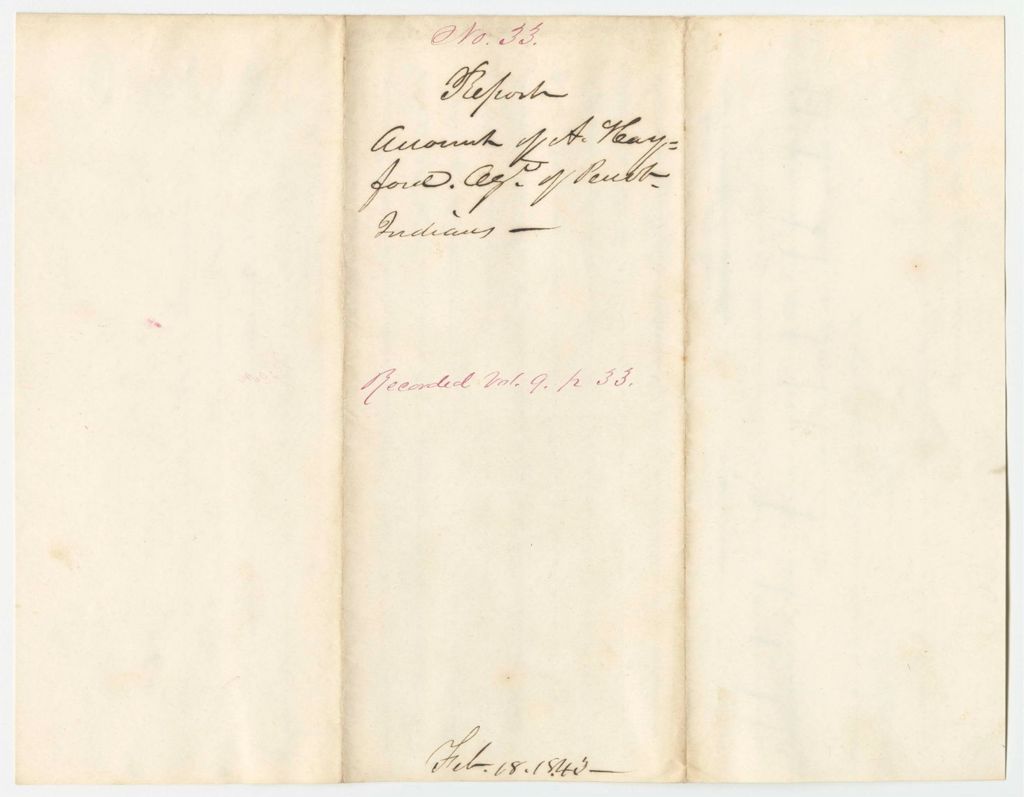 No. 33.
Report
Account of A. Hay=
ford. Agt. of Penob.
Indians —
Recorded Vol. 9. p 33.
Feb. 18. 1843 —